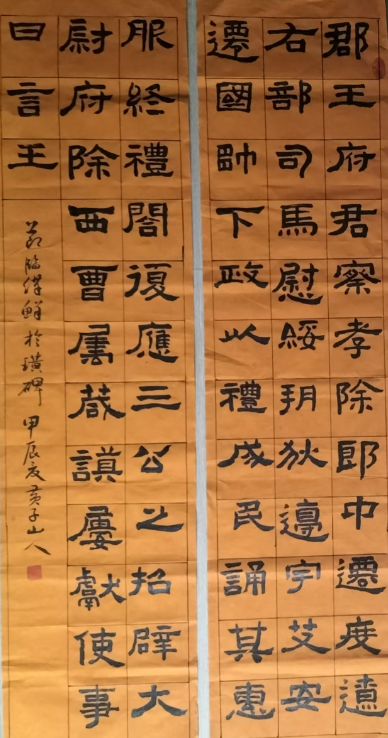 郡王府君察孝除郎中遷度遼
右部司馬慰綏朔狄邊宇艾安
遷國帥下政以禮成民誦其惠
服終禮闋復應三公之招辟大
尉府除西曹屬葴謨屢獻使事
曰言王
節臨漢鮮於璜碑 甲辰夏黃子山人